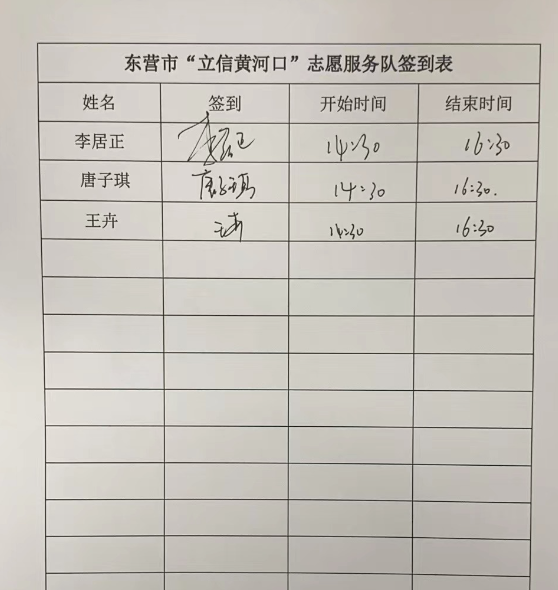 东营市“立信黄河口”志愿服务队签到表
姓名 签到 开始时间 结束时间
李居正 李居正 14:30 16:30
唐子琪 唐子琪 14:30 16:30.
王卉 王卉 14:30 16:30